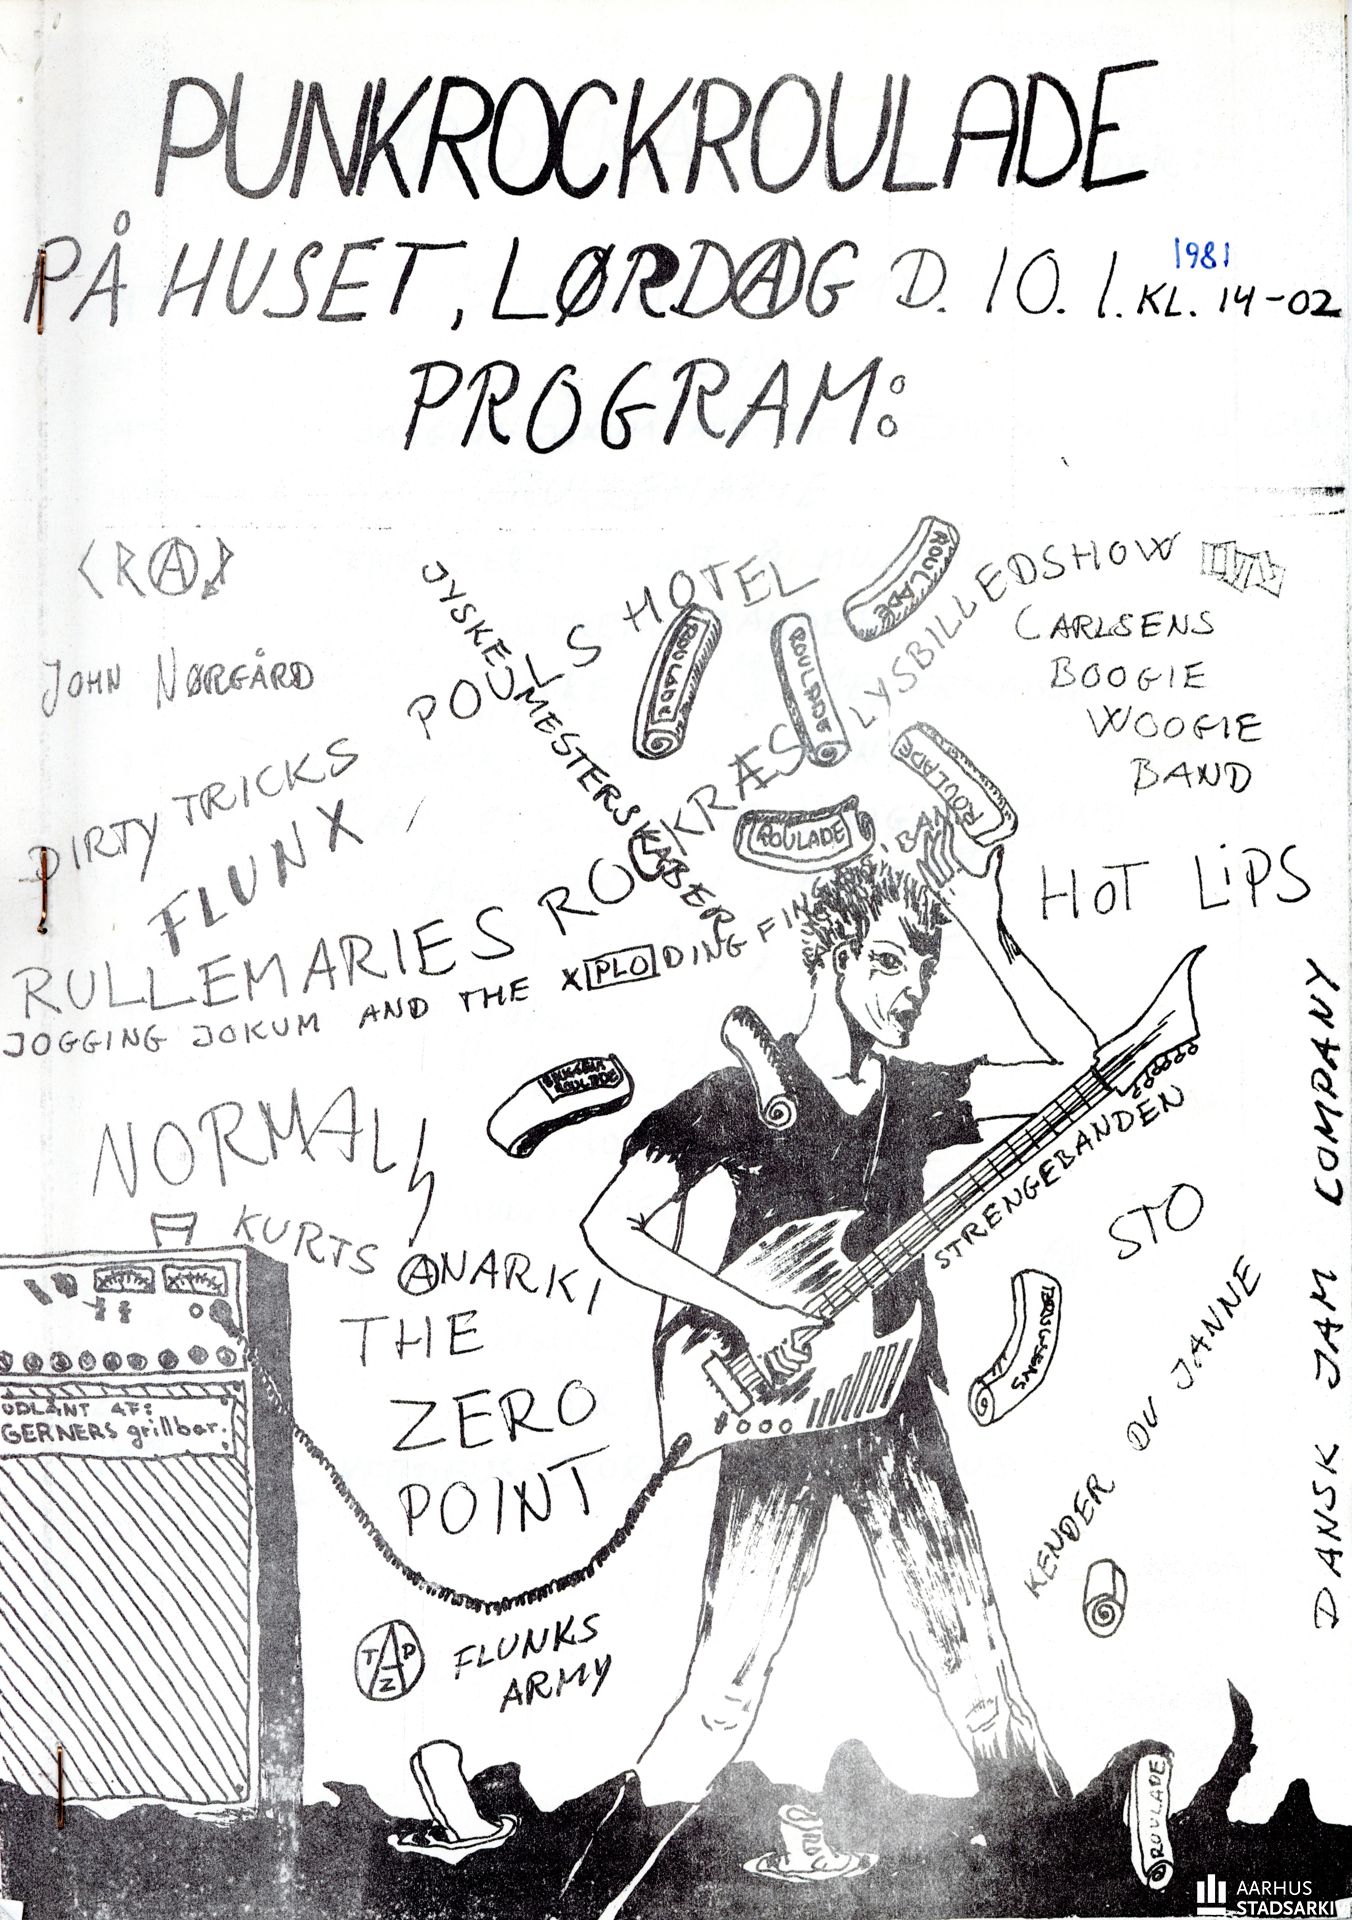 PUNKROCKROULADE
PÅ HUSET, LØRDAG D. 10. 1. KL. 14-02
1981
PROGRAM:
CRAP
JOHN NØRGÅRD
DIRTY TRICKS
FLUNX
POULS HOTEL
JYSKE MESTERSKABER
RULLEMARIES ROCKRÆS
LYSBILLEDSHOW
CARLSENS
BOOGIE
WOOGIE
BAND
HOT LIPS
ROULADE
ROULADE
ROULADE
ROULADE
ROULADE
JOGGING JOKUM AND THE XPLODING FINGER BAND
ROULADE
NORMAL
KURTS ANARKI
THE
ZERO
POINT
TAPZ
FLUNKS
ARMY
UDLÅNT AF:
GERNERS grillbar.
STRENGEBANDEN
STO
KENDER DU JANNE
DANSK JAM COMPANY
ROULADE
AARHUS
STADSARKIV